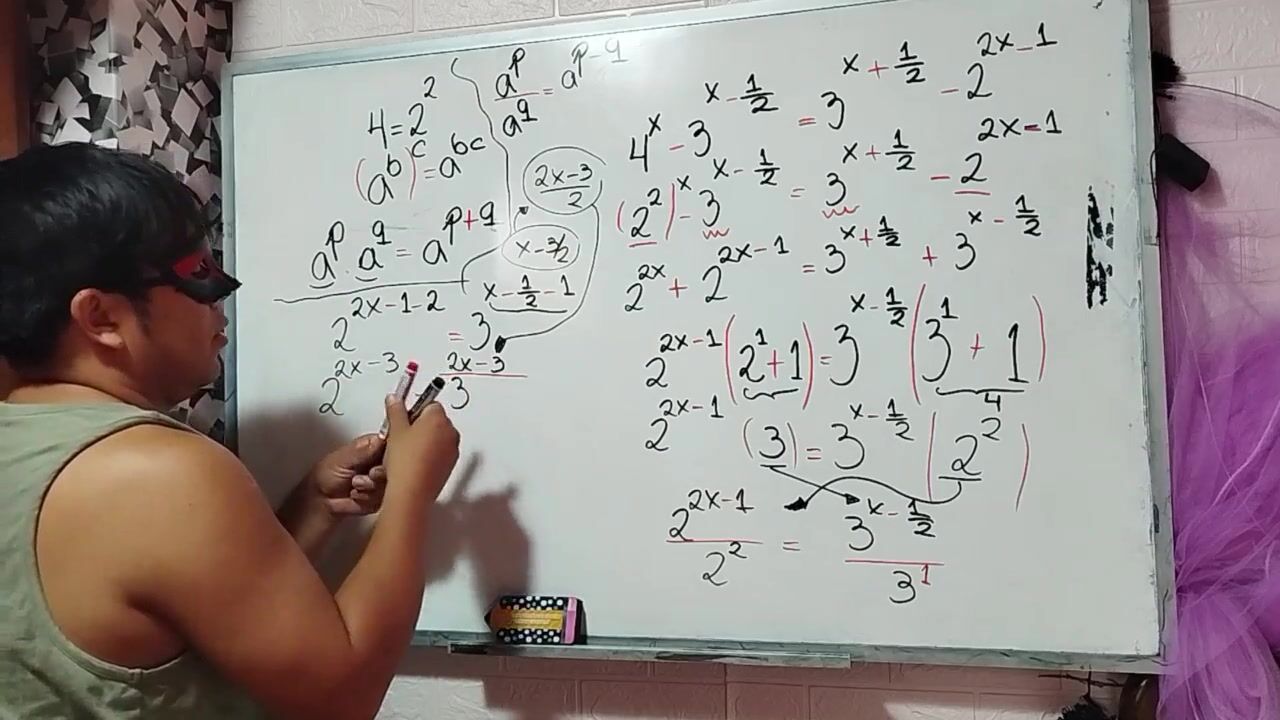 4=2^2
(a^b)^c=a^{bc}
a^p · a^q = a^{p+q}
a^p/a^q = a^{p-q}
(2x-3)/2
x-3/2
x-1/2-1
2^{2x-1-2} = 3
2^{2x-3} 3^{2x-3}
4^x - 3^{x-1/2} = 3^{x+1/2} - 2^{2x-1}
(2^2)^x - 3^{x-1/2} = 3^{x+1/2} - 2^{2x-1}
2^{2x} + 2^{2x-1} = 3^{x+1/2} + 3^{x-1/2}
2^{2x-1}(2^1+1) = 3^{x-1/2}(3^1+1)
4
2^{2x-1} (3) = 3^{x-1/2} (2^2)
2^{2x-1}/2^2 = 3^{x-1/2}/3^1